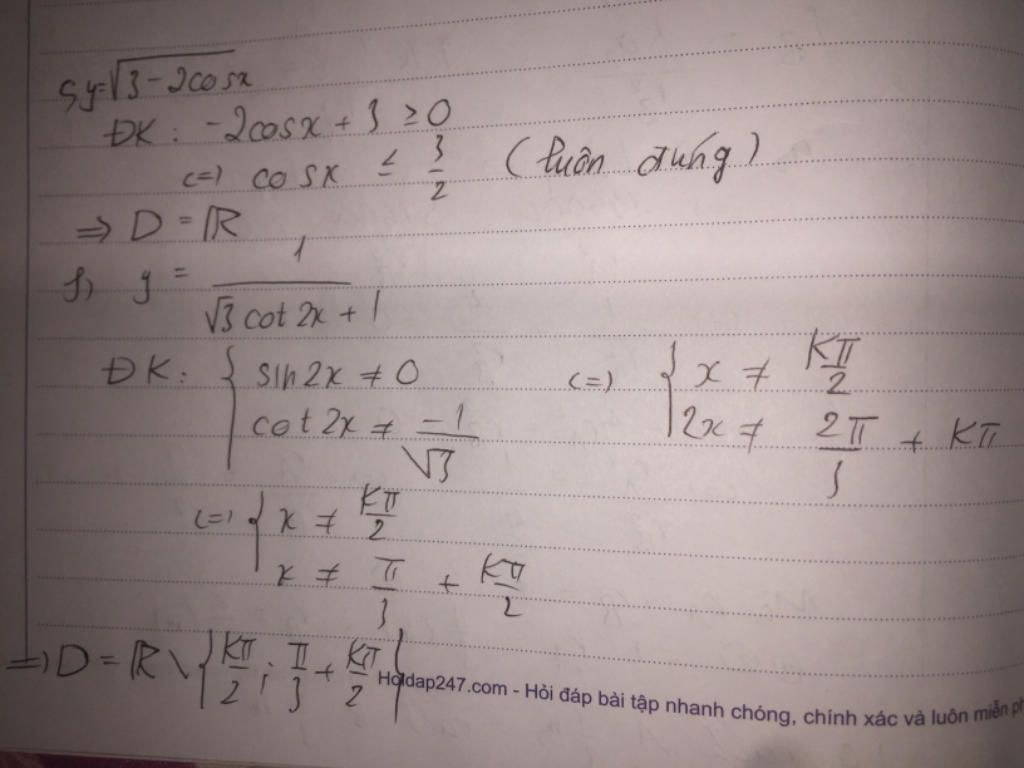 5, y = √(3 - 2cosx)
ĐK: -2cosx + 3 ≥ 0
<=> cosx ≤ 3/2 (luôn đúng)
=> D = ℝ
f, y = 1/(√3 cot2x + 1)
ĐK: { sin2x ≠ 0 <=> { x ≠ Kπ/2
cot2x ≠ -1/√3 2x ≠ 2π/3 + Kπ
<=> { x ≠ Kπ/2
x ≠ π/3 + Kπ/2
=> D = ℝ \ { Kπ/2 ; π/3 + Kπ/2 }
Hoidap247.com - Hỏi đáp bài tập nhanh chóng, chính xác và luôn miễn ph